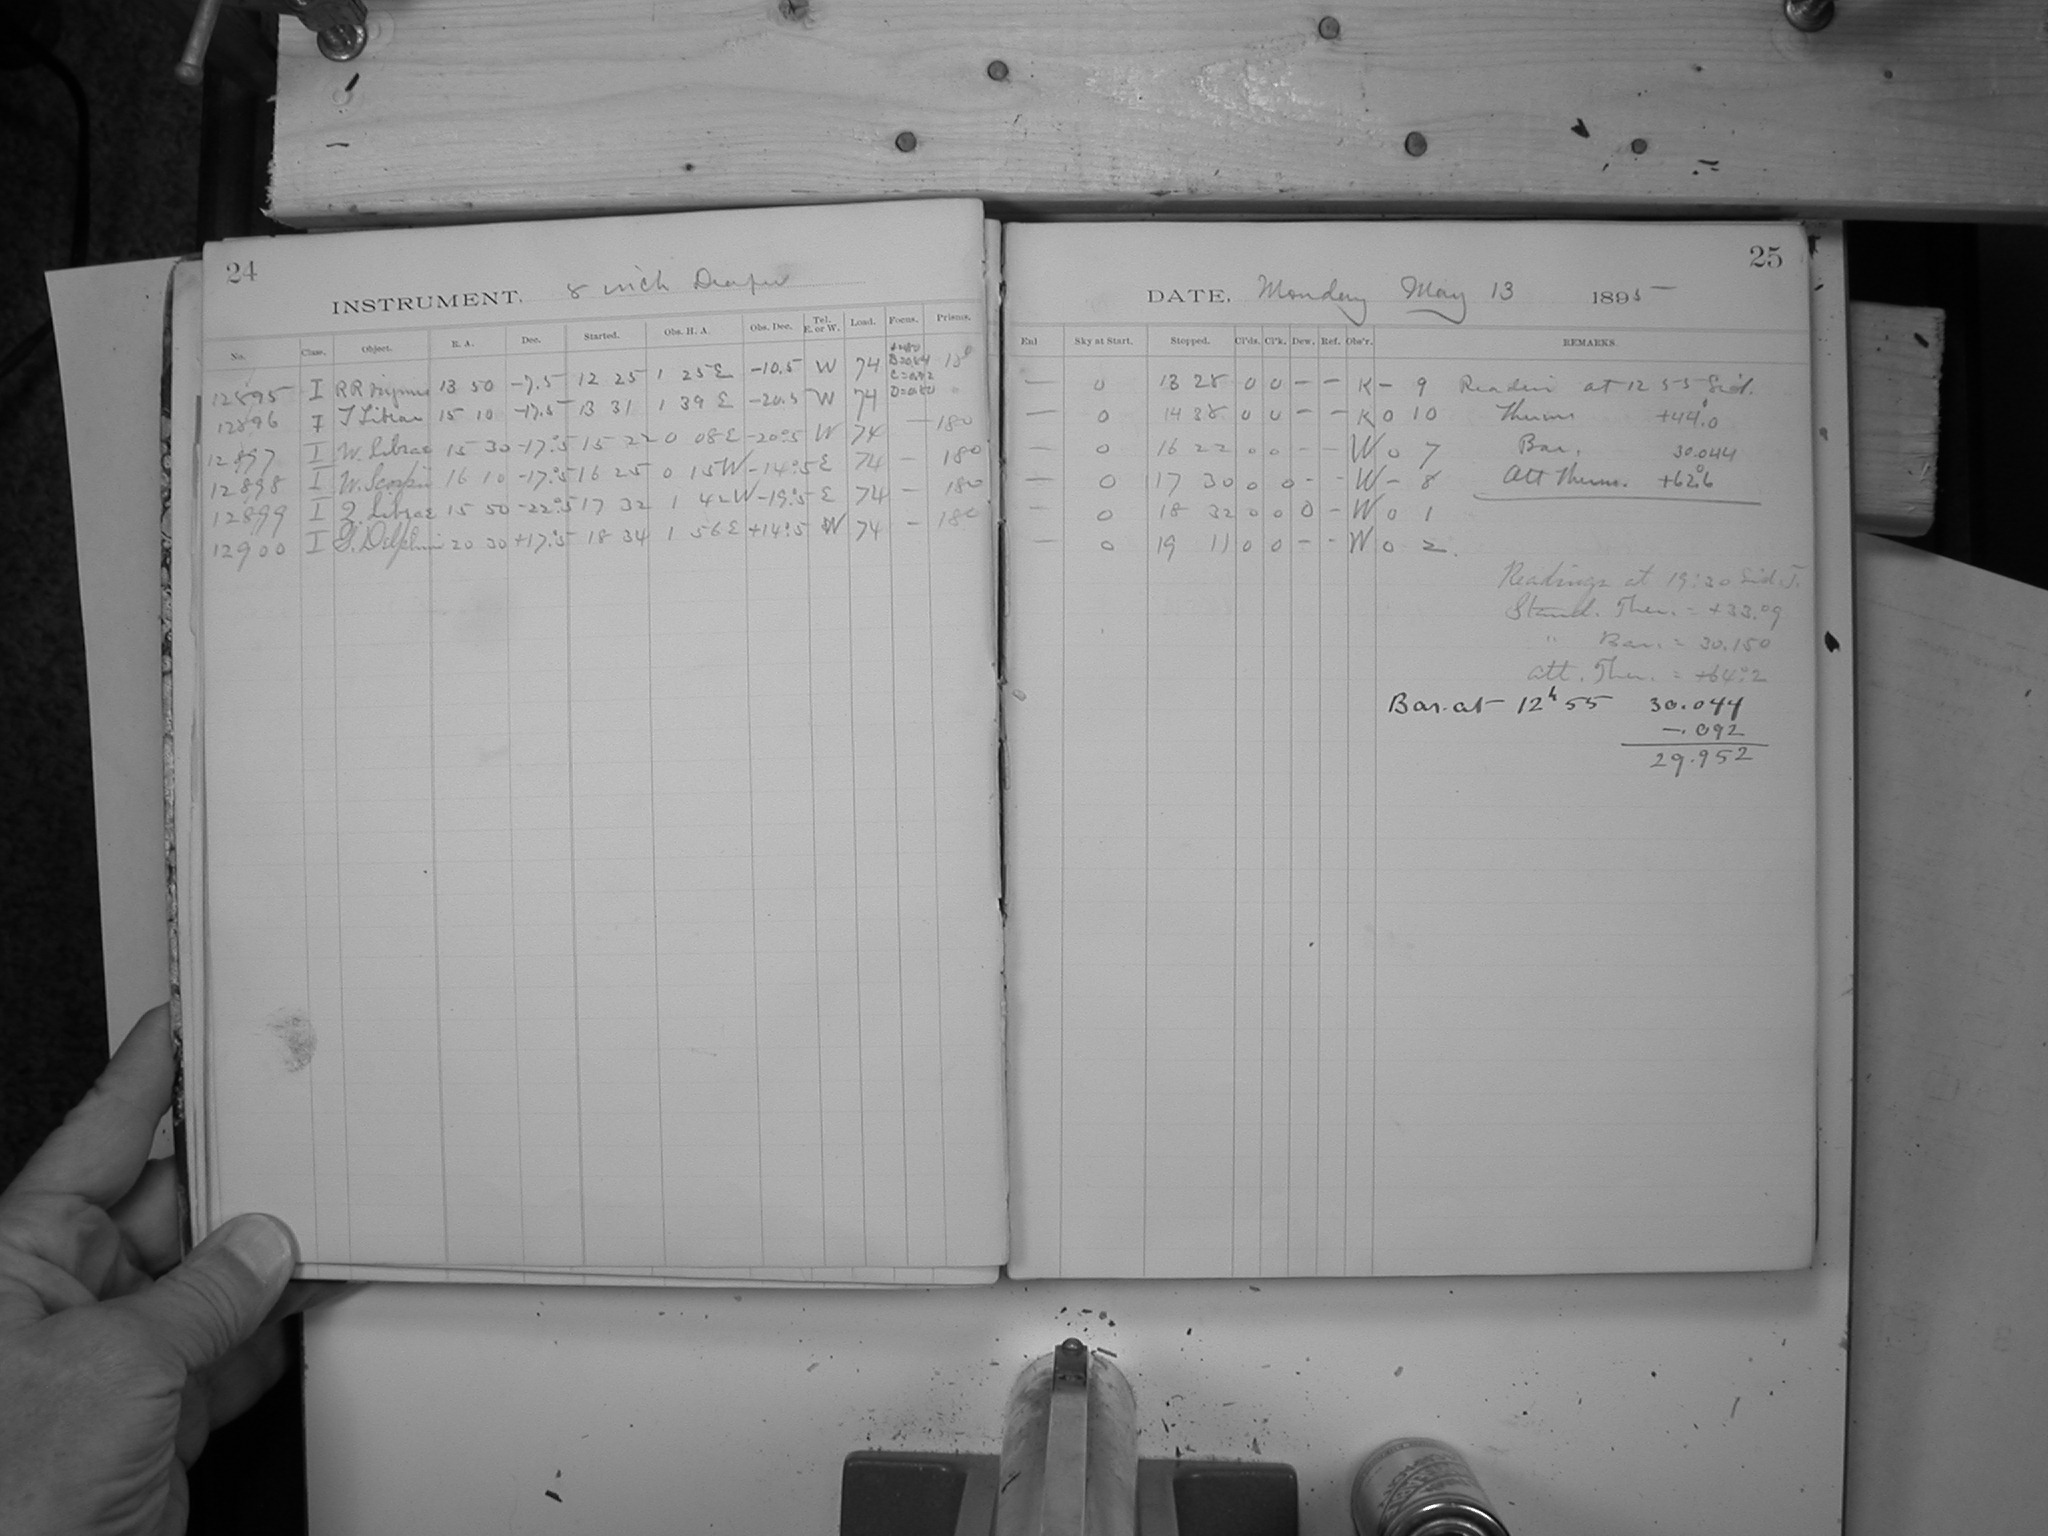 24
INSTRUMENT. 8 inch Draper
No. Class. Object. R. A. Dec. Started. Obs. H. A. Obs. Dec. Tel. E. or W. Load. Focus. Prisms.
12895 I RR 13 50 -7.5 12 25 1 25 E -10.5 W 74 B=0.84 D=0.80
12896 I T Librae 15 10 -17.5 13 31 1 39 E -20.5 W 74
12897 I W. Librae 15 30 -17°.5 15 22 0 08 E -20°.5 W 74 — 180
12898 I W. Scorpii 16 10 -17°.5 16 25 0 15 W -14°.5 E 74 — 180
12899 I Z. Librae 15 50 -22°.5 17 32 1 42 W -19°.5 E 74 — 180
12900 I G. Delphini 20 30 +17°.5 18 34 1 56 E +14°.5 W 74 — 180
25
DATE, Monday May 13 1895
Ext Sky at Start. Stopped. Cl'ds. Cl'k. Dew. Ref. Obs'r. REMARKS.
— 0 13 28 0 0 — — K — 9 Readin at 12 55 Sid.
— 0 14 38 0 0 — — K 0 10 Therm +44°.0
— 0 16 22 0 0 — — W 0 7 Bar. 30.044
— 0 17 30 0 0 - - W — 8 Att Therm. +62°.6
— 0 18 32 0 0 0 - W 0 1
— 0 19 11 0 0 - - W 0 2.
Readings at 19:20 Sid. T.
Stand. Ther. = +33.°9
" Bar. = 30.150
Att. Ther. = +64°.2
Bar. at 12h 55 30.044
-.092
29.952